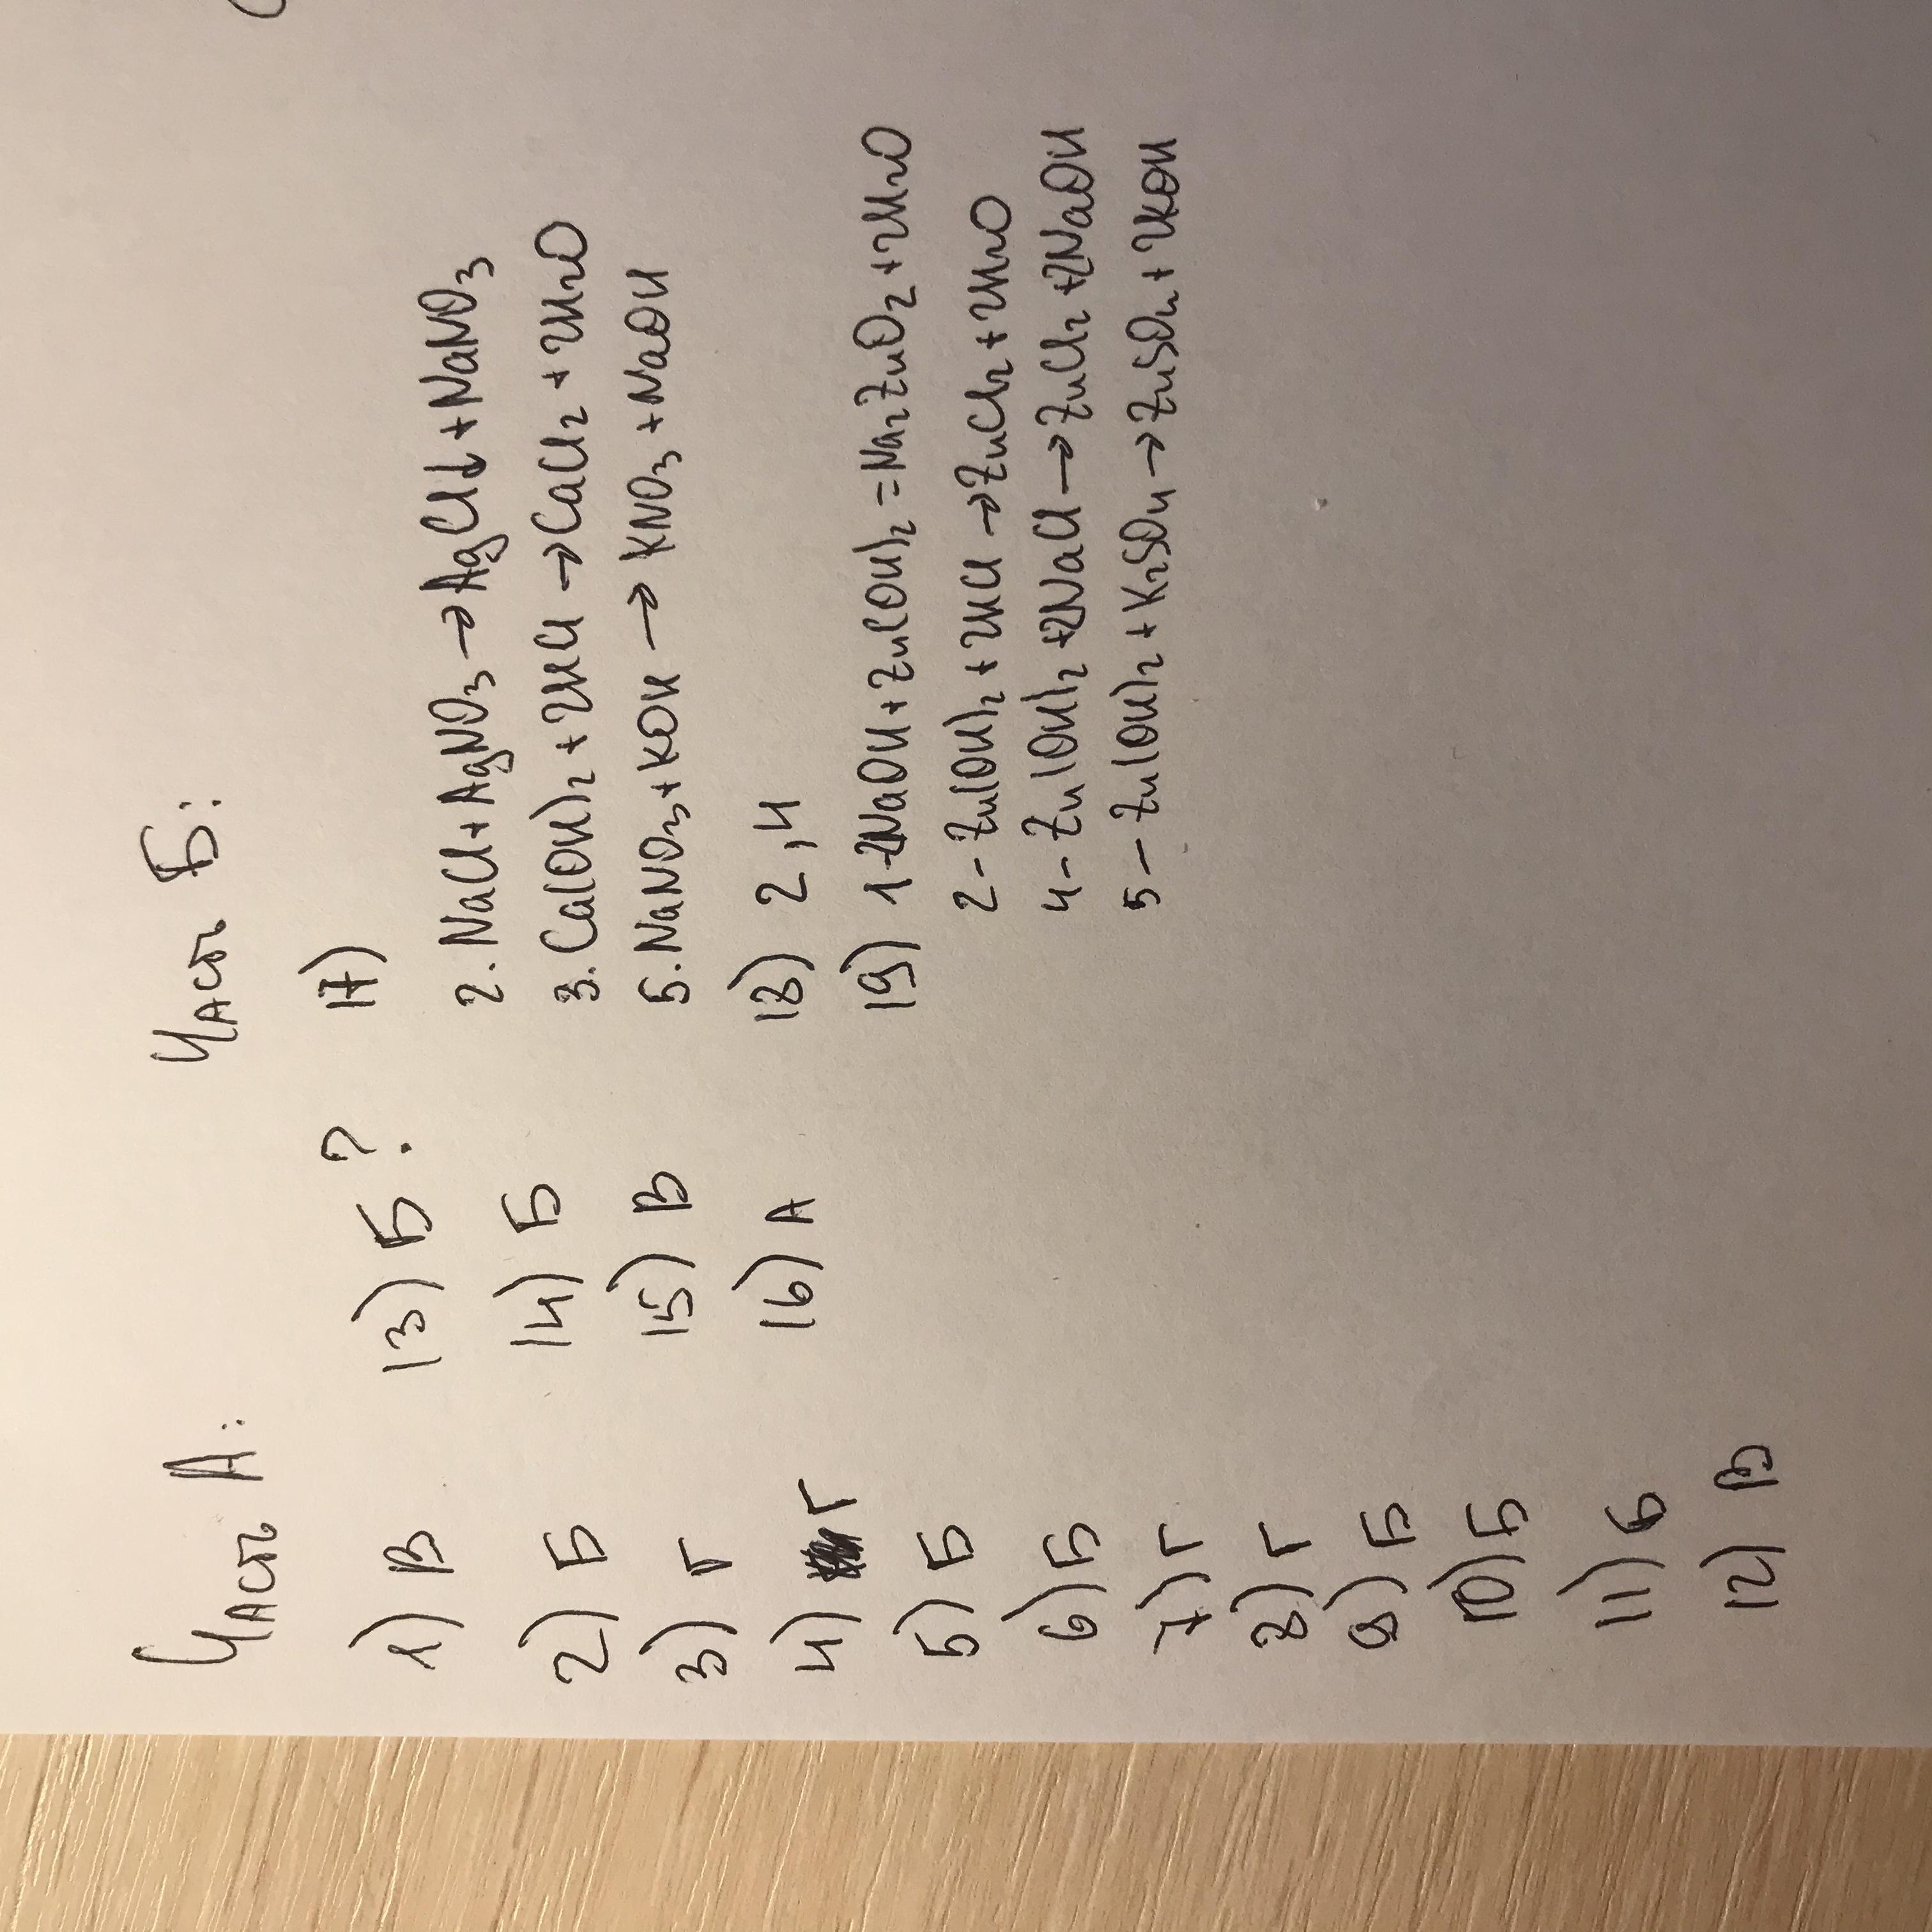 Часть А:
1) В
2) Б
3) Г
4) Г
5) Б
6) Б
7) Г
8) Г
9) Б
10) Б
11) б
12) В
13) Б ?
14) Б
15) В
16) А
Часть Б:
17)
2. NaCl + AgNO₃ → AgCl↓ + NaNO₃
3. Ca(OH)₂ + 2HCl → CaCl₂ + 2H₂O
5. NaNO₃ + KOH → KNO₃ + NaOH
18) 2,4
19) 1-2NaOH + Zn(OH)₂ = Na₂ZnO₂ + 2H₂O
2 - Zn(OH)₂ + 2HCl → ZnCl₂ + 2H₂O
4 - Zn(OH)₂ + 2NaCl → ZnCl₂ + 2NaOH
5 - Zn(OH)₂ + K₂SO₄ → ZnSO₄ + 2KOH